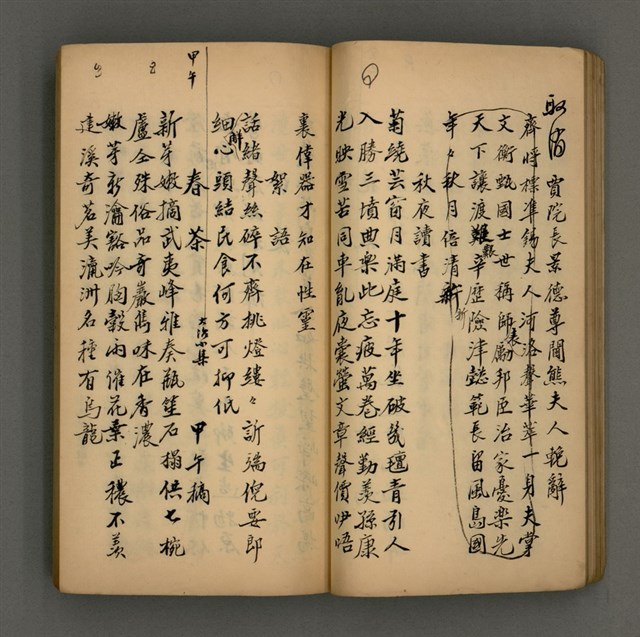 取消
賈院長景德尊閫熊夫人輓辭
齊將標準錫夫人沛洛聲華萃一身夫掌
文衡甄國士世稱師表勵邦臣治家憂樂先
天下讓渡艱辛歷險津懿範長留風島國
年々秋月倍清新
秋夜讀書
菊繞芸窗月滿庭十年坐破幾氊青引人
入勝三墳典樂此忘疲萬卷經勤羨孫康
光映雪苦同車胤夜囊螢文章聲價吵唔
裏偉器才知在性靈
絮語
話緒聲絲碎不齊挑燈縷々訴端倪妥郎
細解心頭結民食何方可抑低
甲午
春茶 大治小集 甲午稿
新芽嫩摘武夷峰雅奏瓶笙石搨供七椀
盧仝殊俗品奇巖雋味在香濃
嫩芽新瀹豁吟胸穀雨催花葉正穠不羨
建溪奇茗美瀛洲名種有烏龍